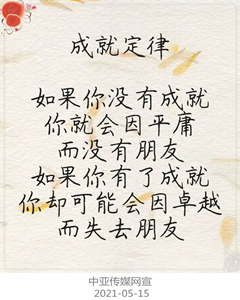 成就定律
如果你没有成就
你就会因平庸
而没有朋友
如果你有了成就
你却可能会因卓越
而失去朋友
中亚传媒网宣
2021-05-15